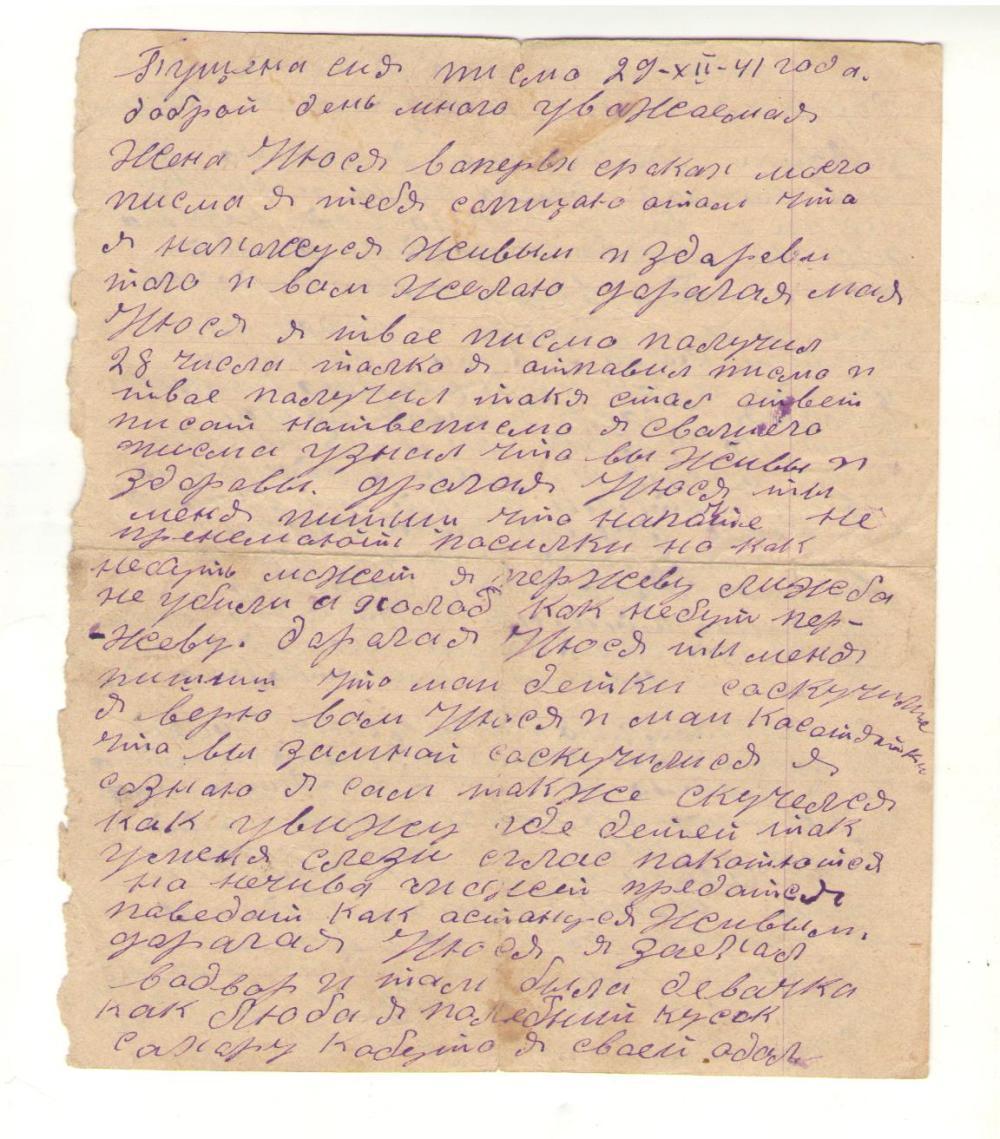 Пущена сия писмо 29-XII-41 года.
доброй день много уважаемая
Жена Нюся вапервы сраках маего
писма я тебя сапщаю атом что
я нахажуся живым и здаревы
таго и вам желаю дарагая мая
Нюся я твае писмо палучил
28 числа талко я атправил писмо и
твае палучил такя стал атвет
писат натвеписмо я свашего
писма узнал что вы живы и
здаровы. драгая Нюся ты
меня пишыш что напочте не
пренемают пасилки но как
небуть может я пержеву лижба
не убили а холод как небут пер-
жеву. Дарагая Нюся ты меня
пишиш что маи детки саскучилис
я верю вам Нюся и маи касатятки
что вы замнай саскучилися я
сазнаю я сам также скучелся
как увижу где детей так
уменя слези сглас пакотются
но нечива может предатся
паведат как астануся живым.
дарагая Нюся я заехал
вадвор и там была девачка
как Люба я паледний кусок
сахару кабуто я сваей адал